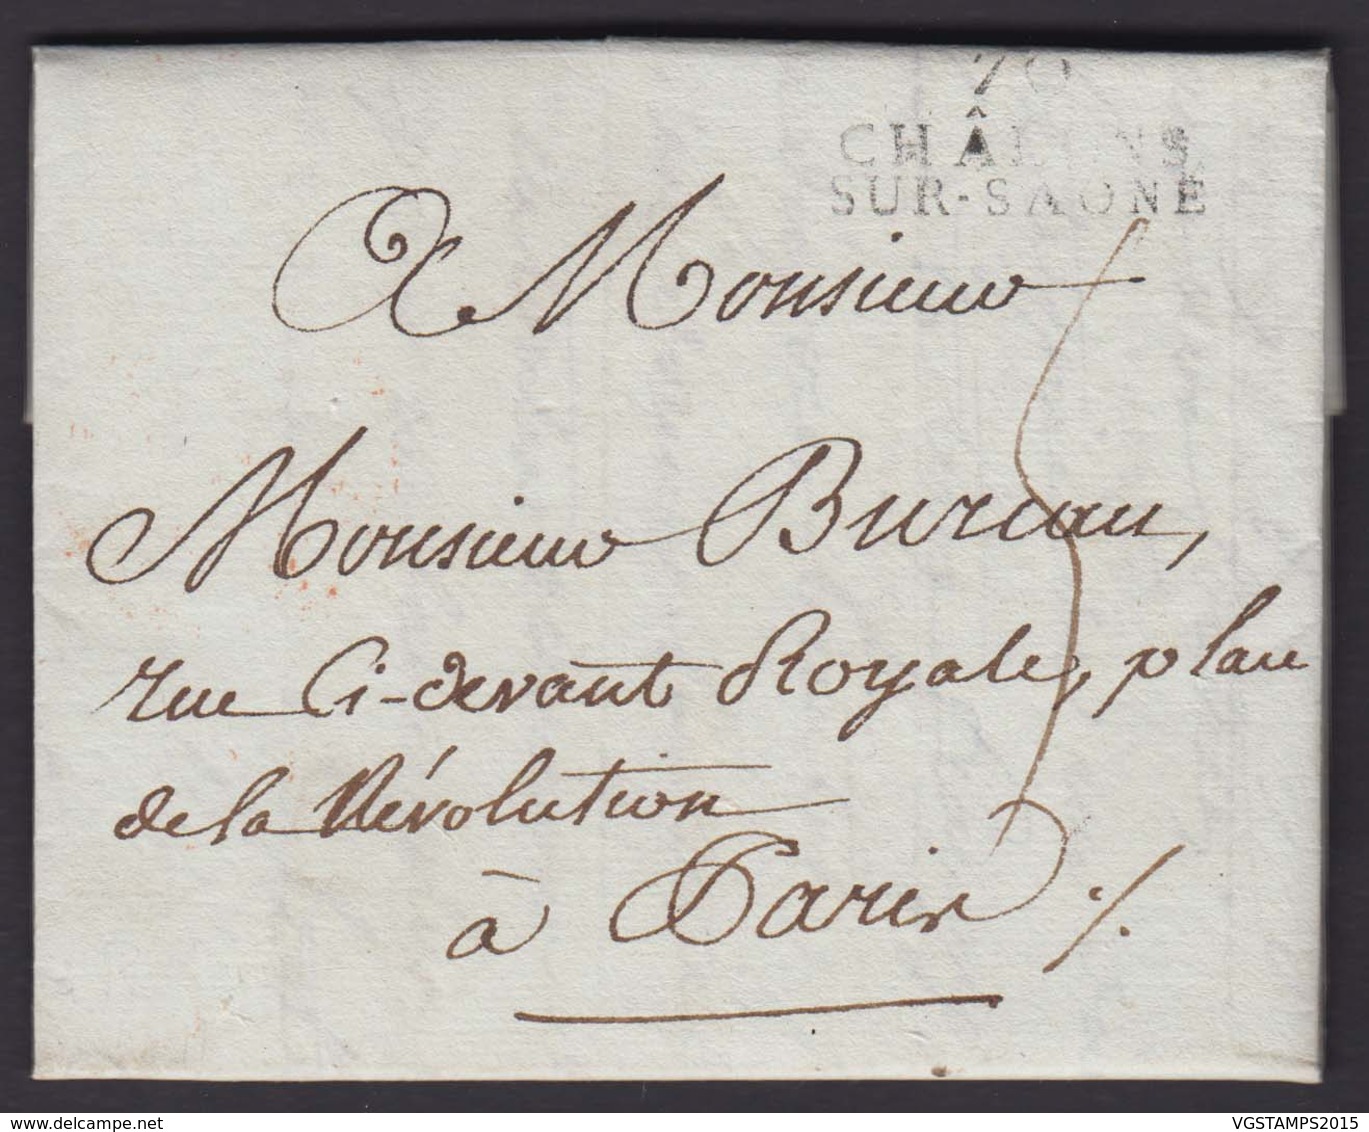 70
CHÂLONS
SUR-SAONE
A Monsieur
Monsieur Bureau,
rue Ci-devant Royale, place
de la Révolution
à Paris ./.
5
delcampe.net
VGSTAMPS2015